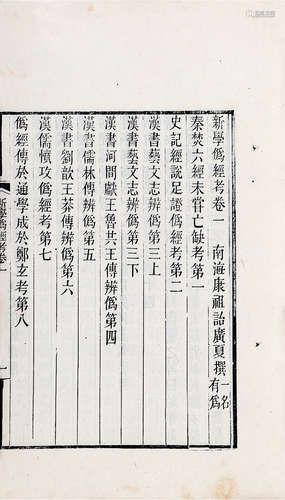 新學僞經考卷一　南海康祖詒廣夏撰一名有爲
秦焚六經未嘗亡缺考第一
史記經說足證僞經考第二
漢書藝文志辨僞第三上
漢書藝文志辨僞第三下
漢書河間獻王魯共王傳辨僞第四
漢書儒林傳辨僞第五
漢書劉歆王莽傳辨僞第六
漢儒憤攻僞經考第七
僞經傳於通學成於鄭玄考第八
新學僞經考卷一
一